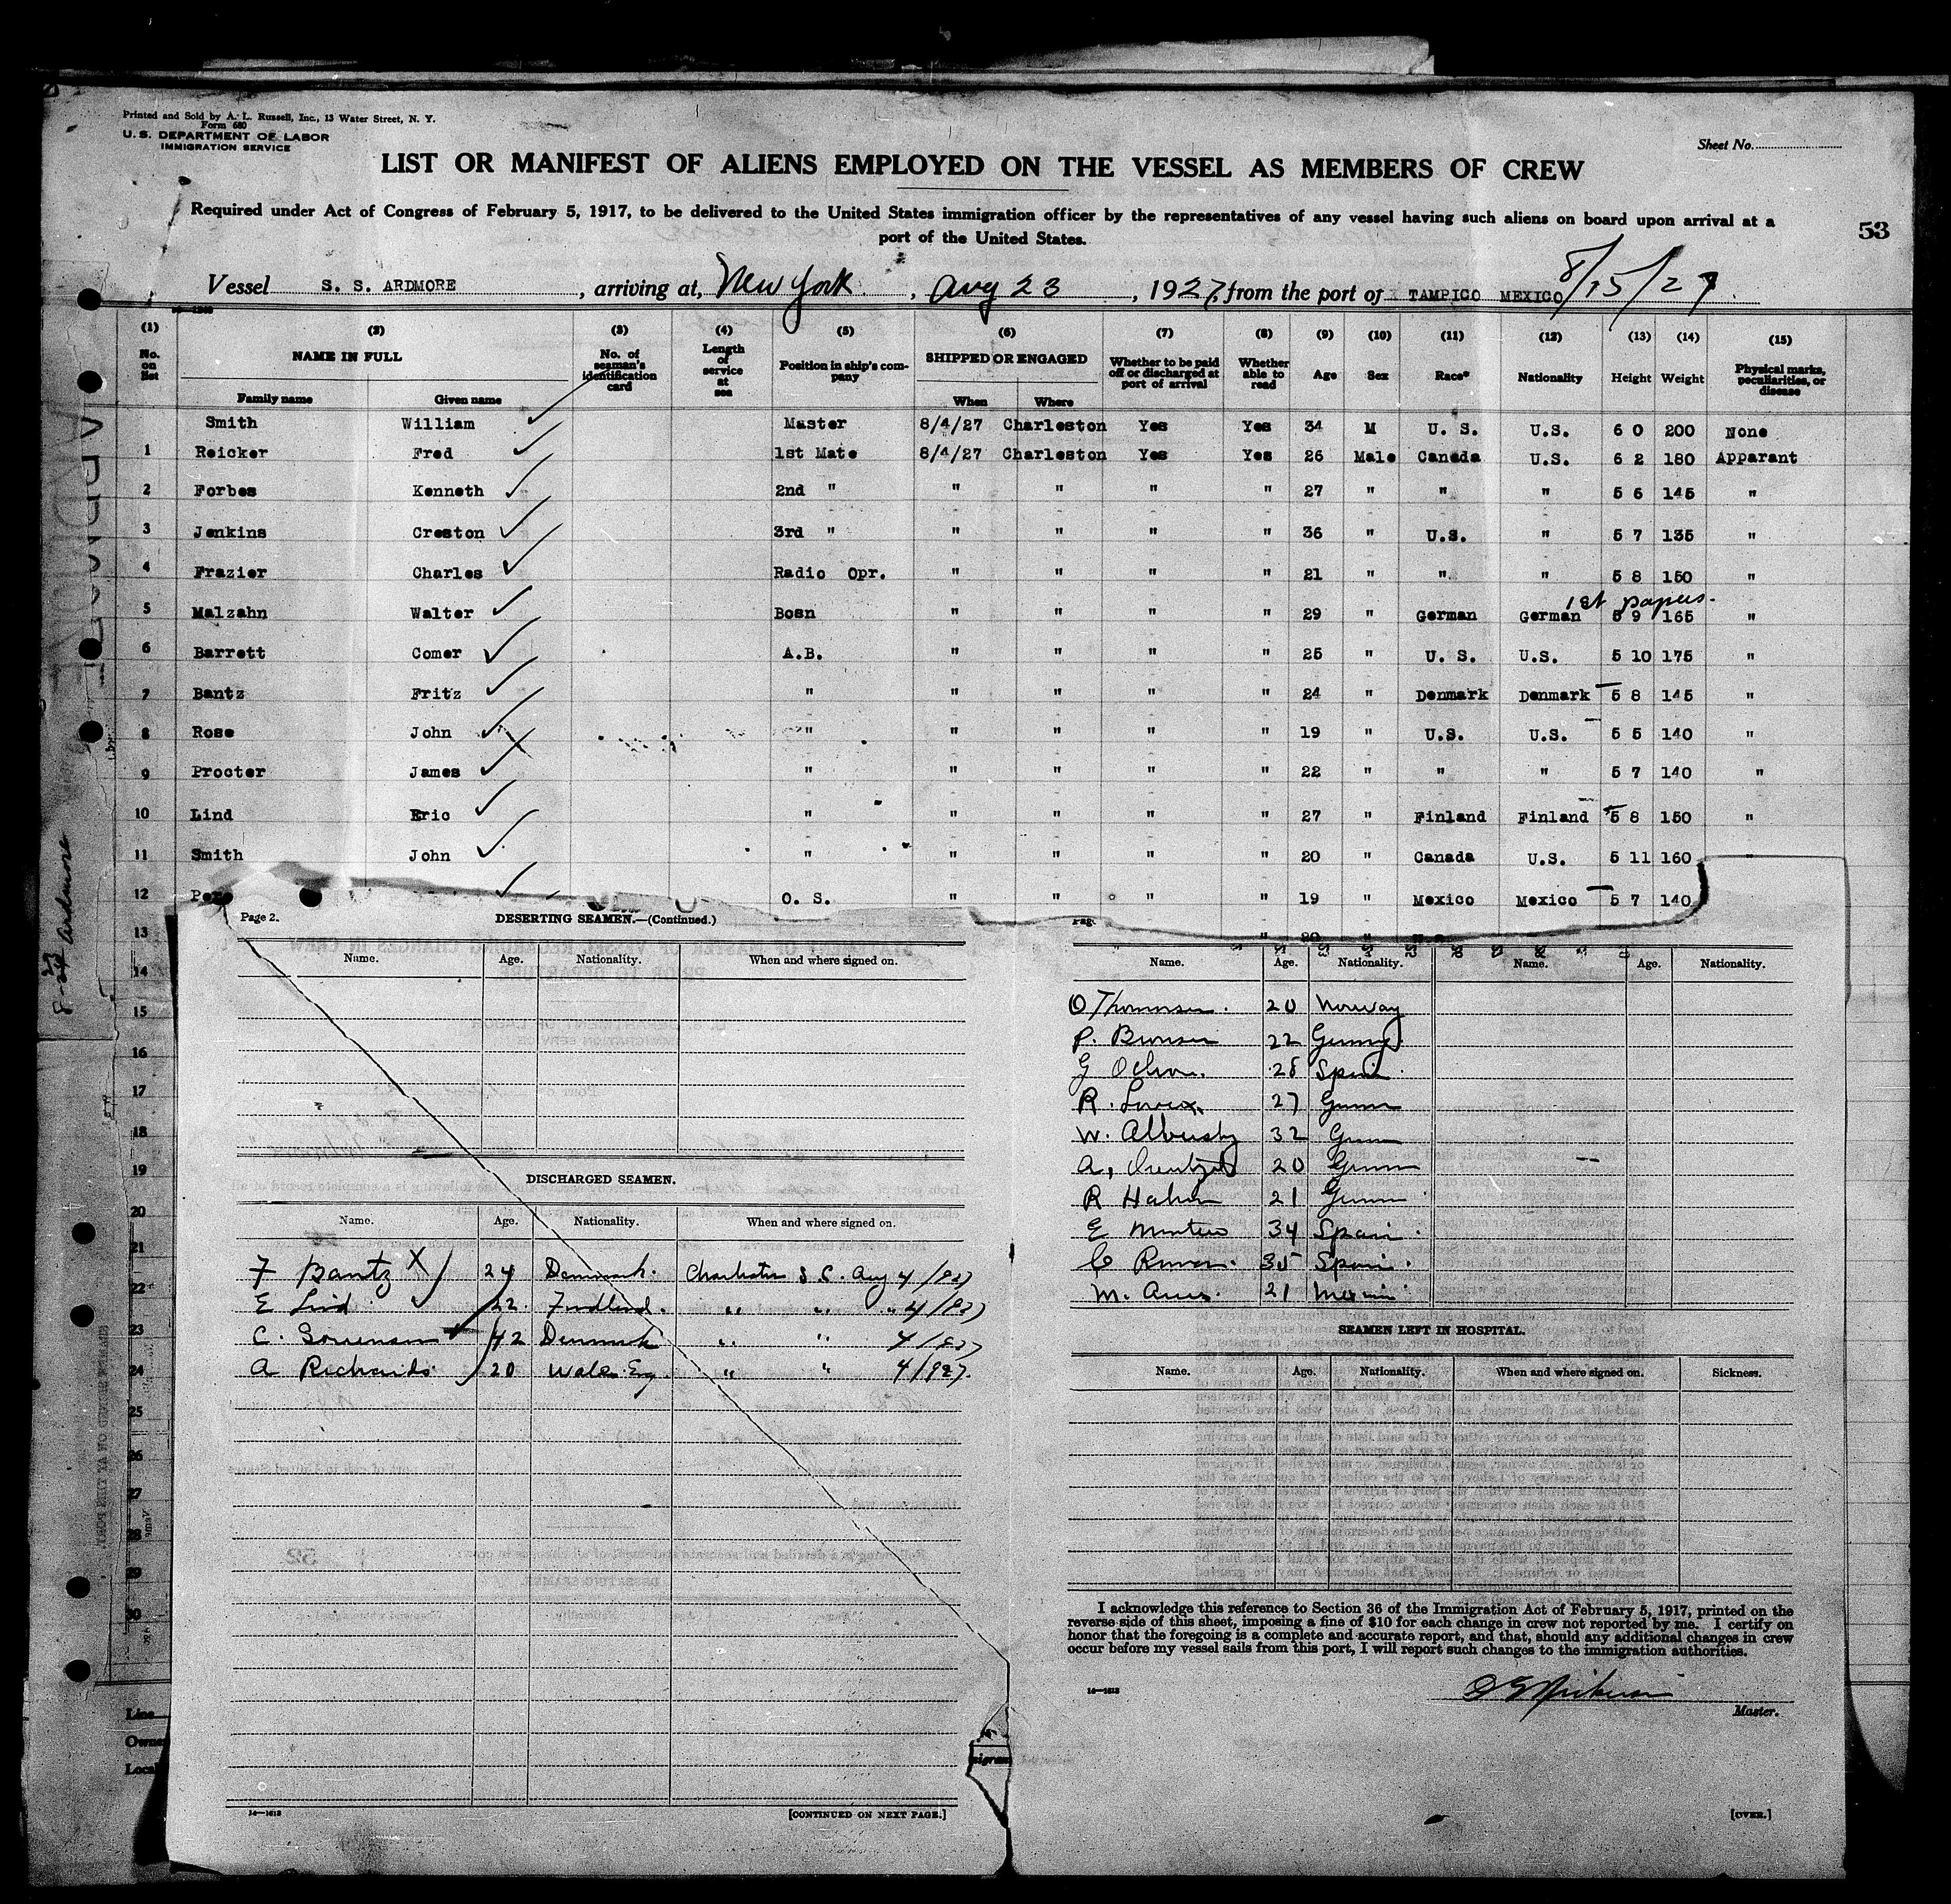 Printed and Sold by A. L. Russell, Inc., 13 Water Street, N. Y.
Form 680
U. S. DEPARTMENT OF LABOR
IMMIGRATION SERVICE
Sheet No.
LIST OR MANIFEST OF ALIENS EMPLOYED ON THE VESSEL AS MEMBERS OF CREW
Required under Act of Congress of February 5, 1917, to be delivered to the United States immigration officer by the representatives of any vessel having such aliens on board upon arrival at a
port of the United States.
53
Vessel S. S. ARDMORE, arriving at, New York, Aug 23, 1927, from the port of TAMPICO MEXICO 8/15/27
(1) (2) (3) (4) (5) (6) (7) (8) (9) (10) (11) (12) (13) (14) (15)
No. on list NAME IN FULL Family name Given name No. of seaman's identification card Length of service at sea Position in ship's company SHIPPED OR ENGAGED When Where Whether to be paid off or discharged at port of arrival Whether able to read Age Sex Race* Nationality Height Weight Physical marks, peculiarities, or disease
Smith William Master 8/4/27 Charleston Yes Yes 34 M U. S. U.S. 6 0 200 None
1 Reicker Fred 1st Mate 8/4/27 Charleston Yes Yes 26 Male Canada U.S. 6 2 180 Apparant
2 Forbes Kenneth 2nd " " " " " 27 " " " 5 6 145 "
3 Jenkins Creston 3rd " " " " " 36 " U.S. " 5 7 135 "
4 Frazier Charles Radio Opr. " " " " 21 " " " 5 8 150 "
1st papers.
5 Malzahn Walter Bosn " " " " 29 " German German 5 9 165 "
6 Barrett Comer A.B. " " " " 25 " U. S. U.S. 5 10 175 "
7 Bantz Fritz " " " " " 24 " Denmark Denmark 5 8 145 "
8 Rose John " " " " " 19 " U.S. U.S. 5 5 140 "
9 Procter James " " " " " 22 " " " 5 7 140 "
10 Lind Eric " " " " " 27 " Finland Finland 5 8 150 "
11 Smith John " " " " " 20 " Canada U.S. 5 11 160 "
12 O. S. " " " " 19 " Mexico Mexico 5 7 140
13
14
15
16
17
18
19
20
21
22
23
24
25
26
27
28
29
30
Ardmore
Line
Owne
Local
Page 2.
DESERTING SEAMEN.—(Continued.)
Name. Age. Nationality. When and where signed on.
DISCHARGED SEAMEN.
Name. Age. Nationality. When and where signed on.
F Bantz X 24 Denmark. Charleston S. C. Aug 4/927
E Lind 22. " " " 4/927
C. Sorrensen 42 Denmark " " 4/927
A Richards 20 Wales Eng " " 4/927.
14—1613
[CONTINUED ON NEXT PAGE.]
Name. Age. Nationality. Name. Age. Nationality.
O Thomsen. 20 Norway
P. 22 Germany
G 28 Spain.
R. 27 German
W. 32 German
A. 20 German
R Hahn 21 German
E 34 Spain.
C 35 Spain.
M. 21
SEAMEN LEFT IN HOSPITAL.
Name. Age. Nationality. When and where signed on. Sickness.
I acknowledge this reference to Section 36 of the Immigration Act of February 5, 1917, printed on the
reverse side of this sheet, imposing a fine of $10 for each change in crew not reported by me. I certify on
honor that the foregoing is a complete and accurate report, and that, should any additional changes in crew
occur before my vessel sails from this port, I will report such changes to the immigration authorities.
14—1613
Master.
[OVER.]